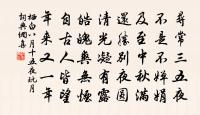 尋常三五夜
不是不嬋娟
及至中秋滿
還勝別夜圓
清光凝有露
皓魄爽無煙
自古人皆望
年來又一年
栖白八月十五夜玩月
詞典網